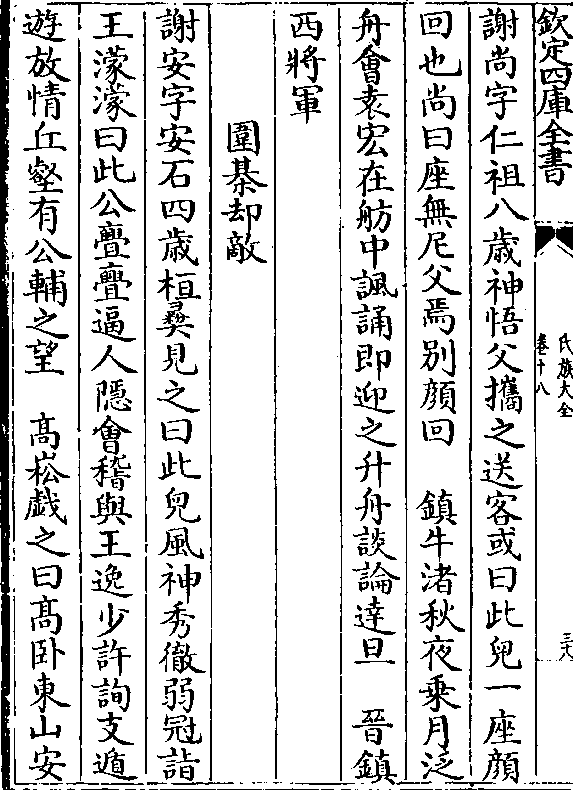 欽定四庫全書
氏族大全
卷十八
三大
謝尚字仁祖八歳神悟父攜之送客或曰此兒一座顔
回也尚曰座無尼父焉别顔回　鎮牛渚秋夜乗月泛
舟會袁宏在舫中諷誦即迎之升舟談論達旦　晉鎮
西將軍
圍棊却敵
謝安字安石四歳桓彞見之曰此兒風神秀徹弱冠詣
王濛濛曰此公亹亹逼人隠㑹稽與王逸少許詢支遁
遊放情丘壑有公輔之望　髙崧戯之曰髙卧東山安